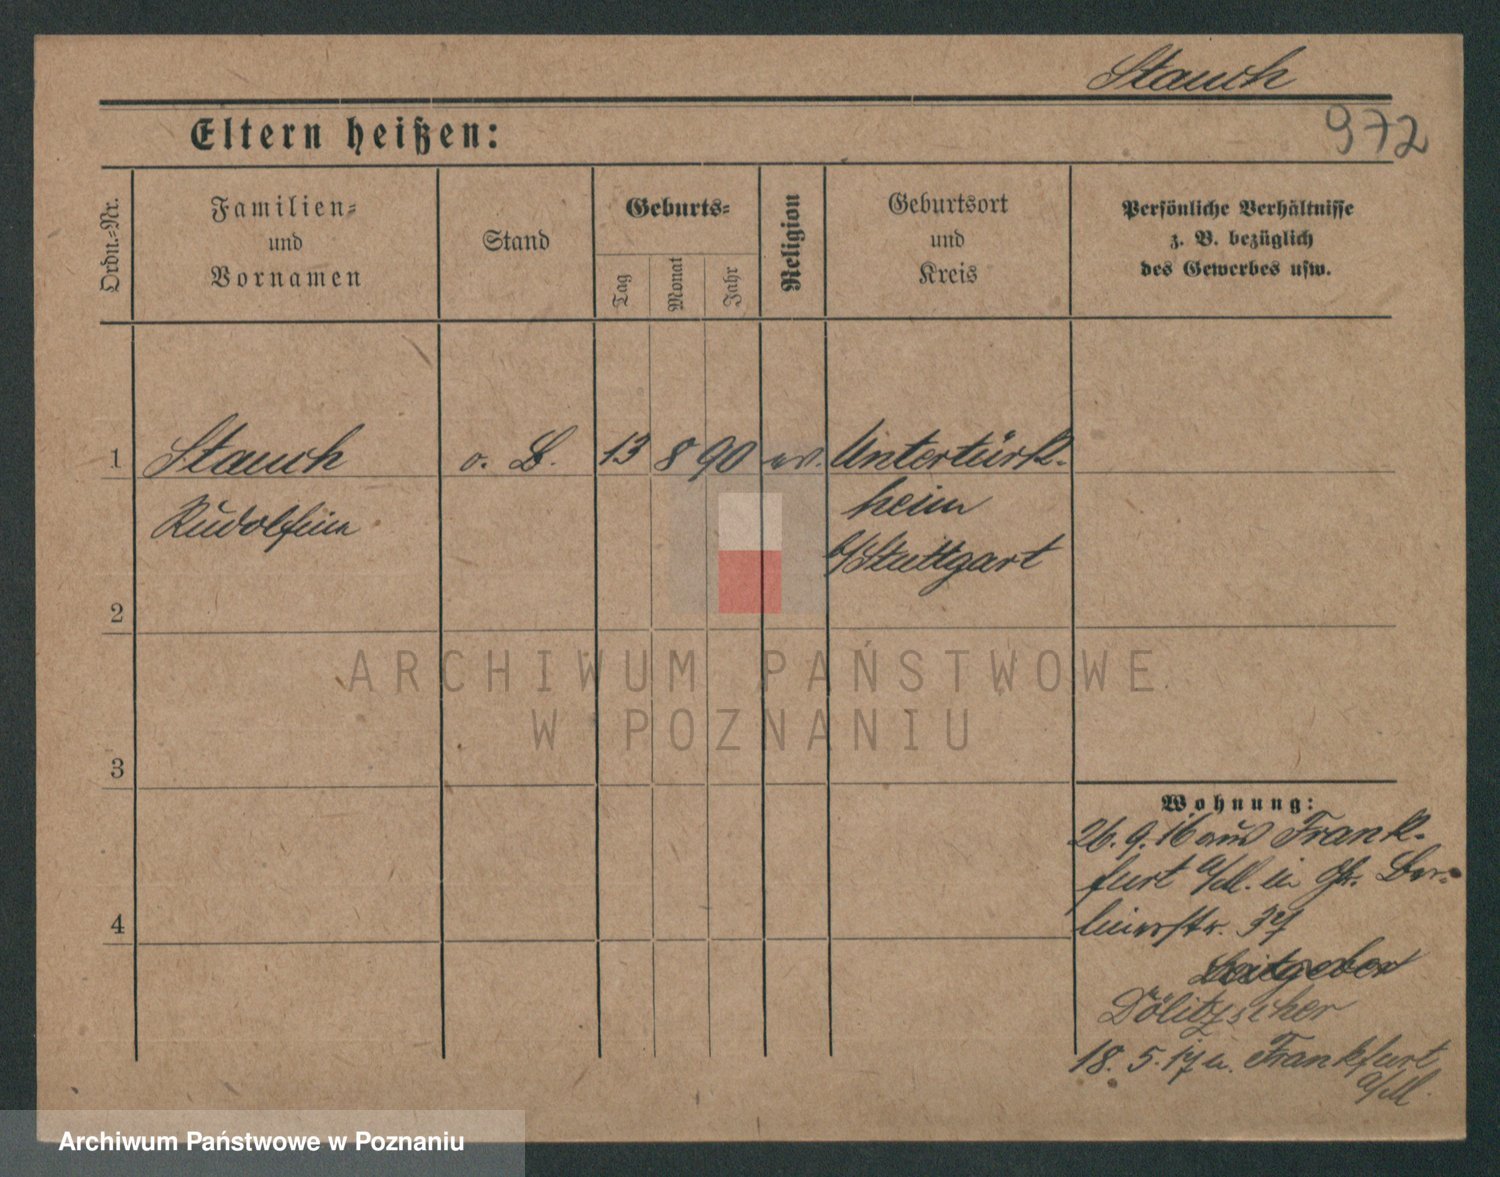 Stauch
972
Eltern heißen:
Ordn.=Nr.
Familien=
und
Vornamen
Stand
Geburts=
Tag
Monat
Jahr
Religion
Geburtsort
und
Kreis
Persönliche Verhältnisse
z. B. bezüglich
des Gewerbes usw.
1 Stauch o. B. 13 8 90 ev. Untertürk-
Rudolfine heim
b/Stuttgart
2
3
4
ARCHIWUM PAŃSTWOWE
W POZNANIU
Wohnung:
26. 9. 16 aus Frank-
furt a/M. in Gr. Ber-
linerstr. 37
Dölitzscher
18. 5. 17 n. Frankfurt
a/M.
Archiwum Państwowe w Poznaniu